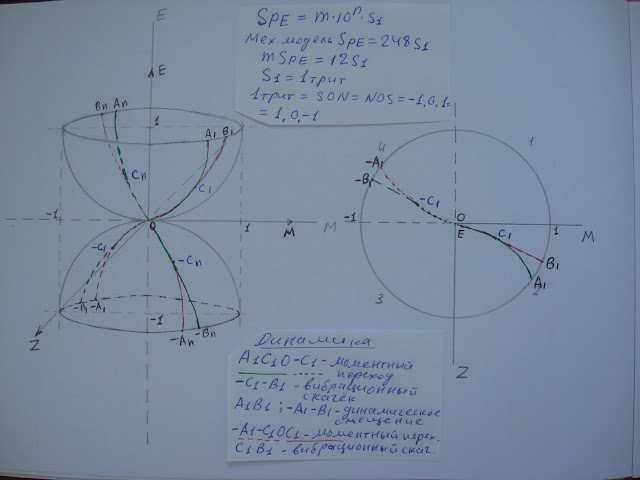 SPE = m·10ⁿ·S1
Мех.модель SPE=248S1
mSPE=12S1
S1 = 1трит
1трит = SON=NOS=-1,0,1=
= 1,0,-1
E
E
Bn An
1
A1 B1
Cn
C1
-1
O
1
M
-C1
-Cn
-B1 -A1
-1
-An -Bn
Z
1
4
-A1
-B1
-C1
M
-1
O
E
C1
1
M
B1
A1
3
2
Z
Динамика
A1C1O-C1-моментный
переход
-C1-B1-вибрационный
скачек
A1B1;-A1-B1-динамическое
смещение
-A1-C1OC1-моментный перех.
C1B1-вибрационный скач.